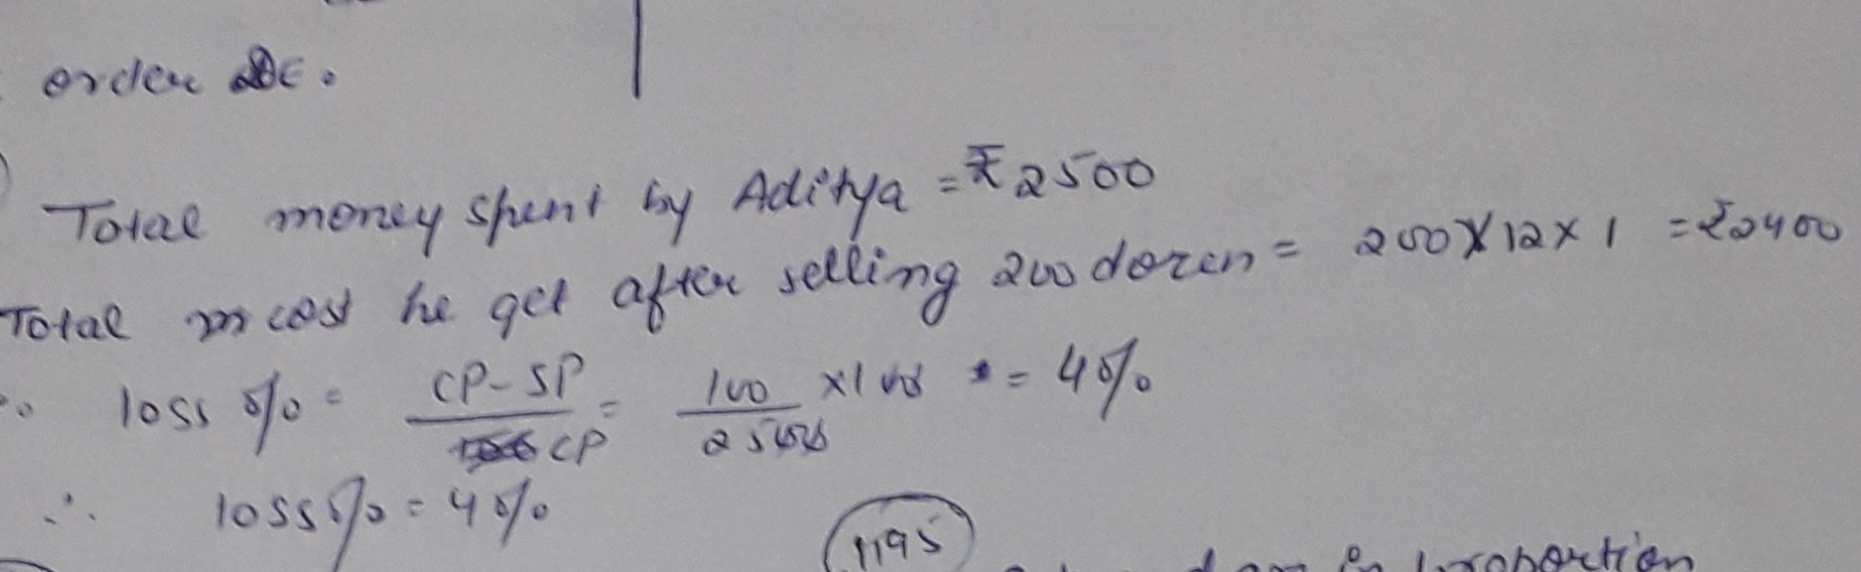 order DE.
Total money spent by Aditya = ₹2500
Total cost he get after selling 200 dozen = 200 X 12 X 1 = ₹2400
loss % = CP - SP / CP = 100 / 2500 x 100 = 4%
∴ loss % = 4%
1195
in proportion